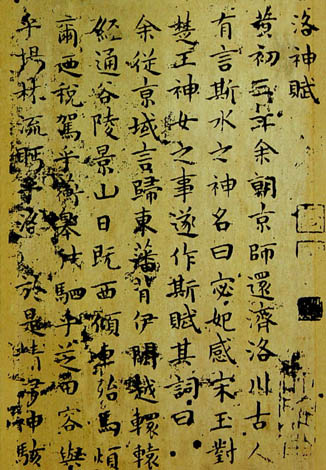 洛神賦
黃初三年余朝京師還濟洛川古人
有言斯水之神名曰宓妃感宋玉對
楚王神女之事遂作斯賦其詞曰
余從京域言歸東藩背伊闕越轘轅
經通谷陵景山日既西傾車殆馬煩
爾迺稅駕乎蘅皋秣駟乎芝田容與
乎楊林流眄乎洛於是精移神駭